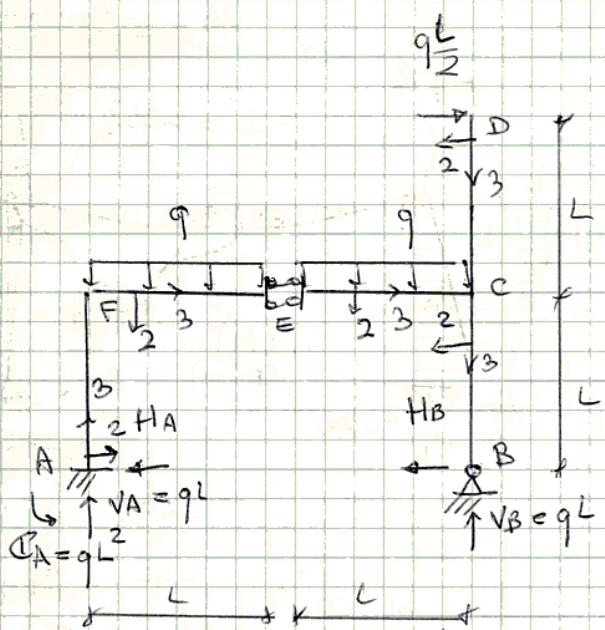 qL/2
D
2
3
L
q
q
F
3
2
E
2
3
2
C
3
3
2
HA
HB
L
A
B
VA = qL
VB = qL
CA = qL²
L
L